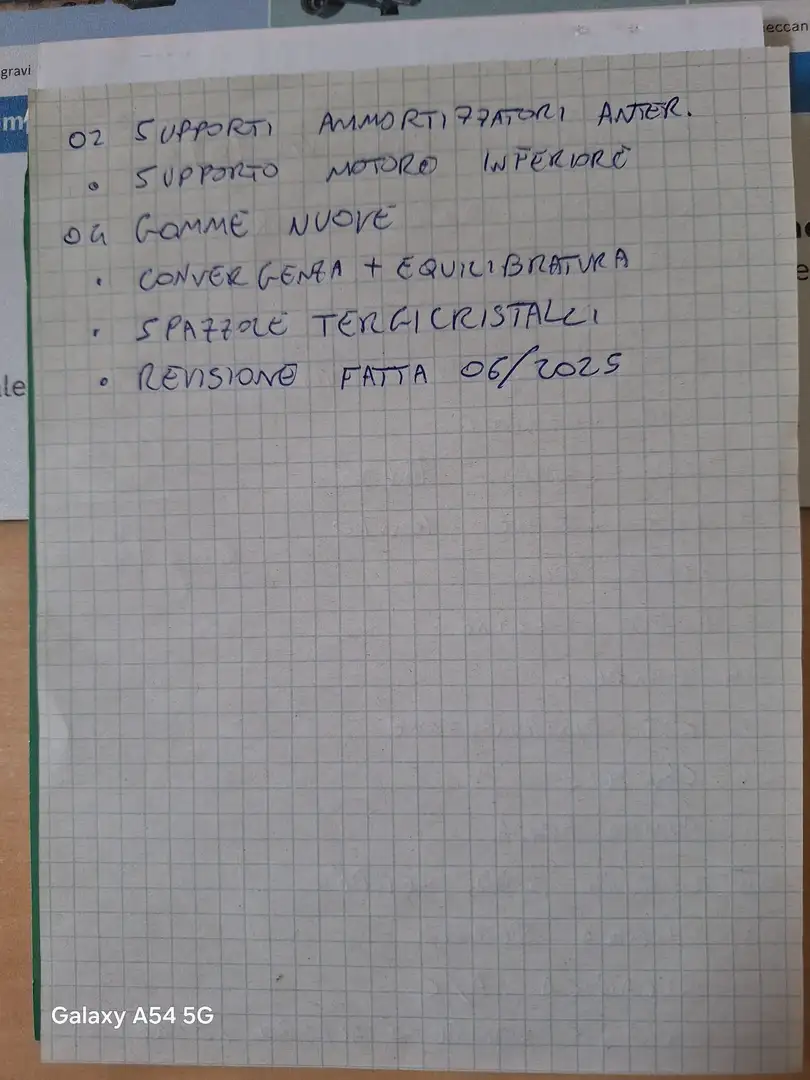 gravi
eccan
m
02 SUPPORTI AMMORTIZZATORI ANTER.
• SUPPORTO MOTORE INFERIORE
04 GOMME NUOVE
• CONVERGENZA + EQUILIBRATURA
• SPAZZOLE TERGICRISTALLI
• REVISIONE FATTA 06/2025
le
Galaxy A54 5G